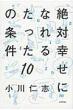 絶対幸せに
なれる
たった10
の条件
小川仁志